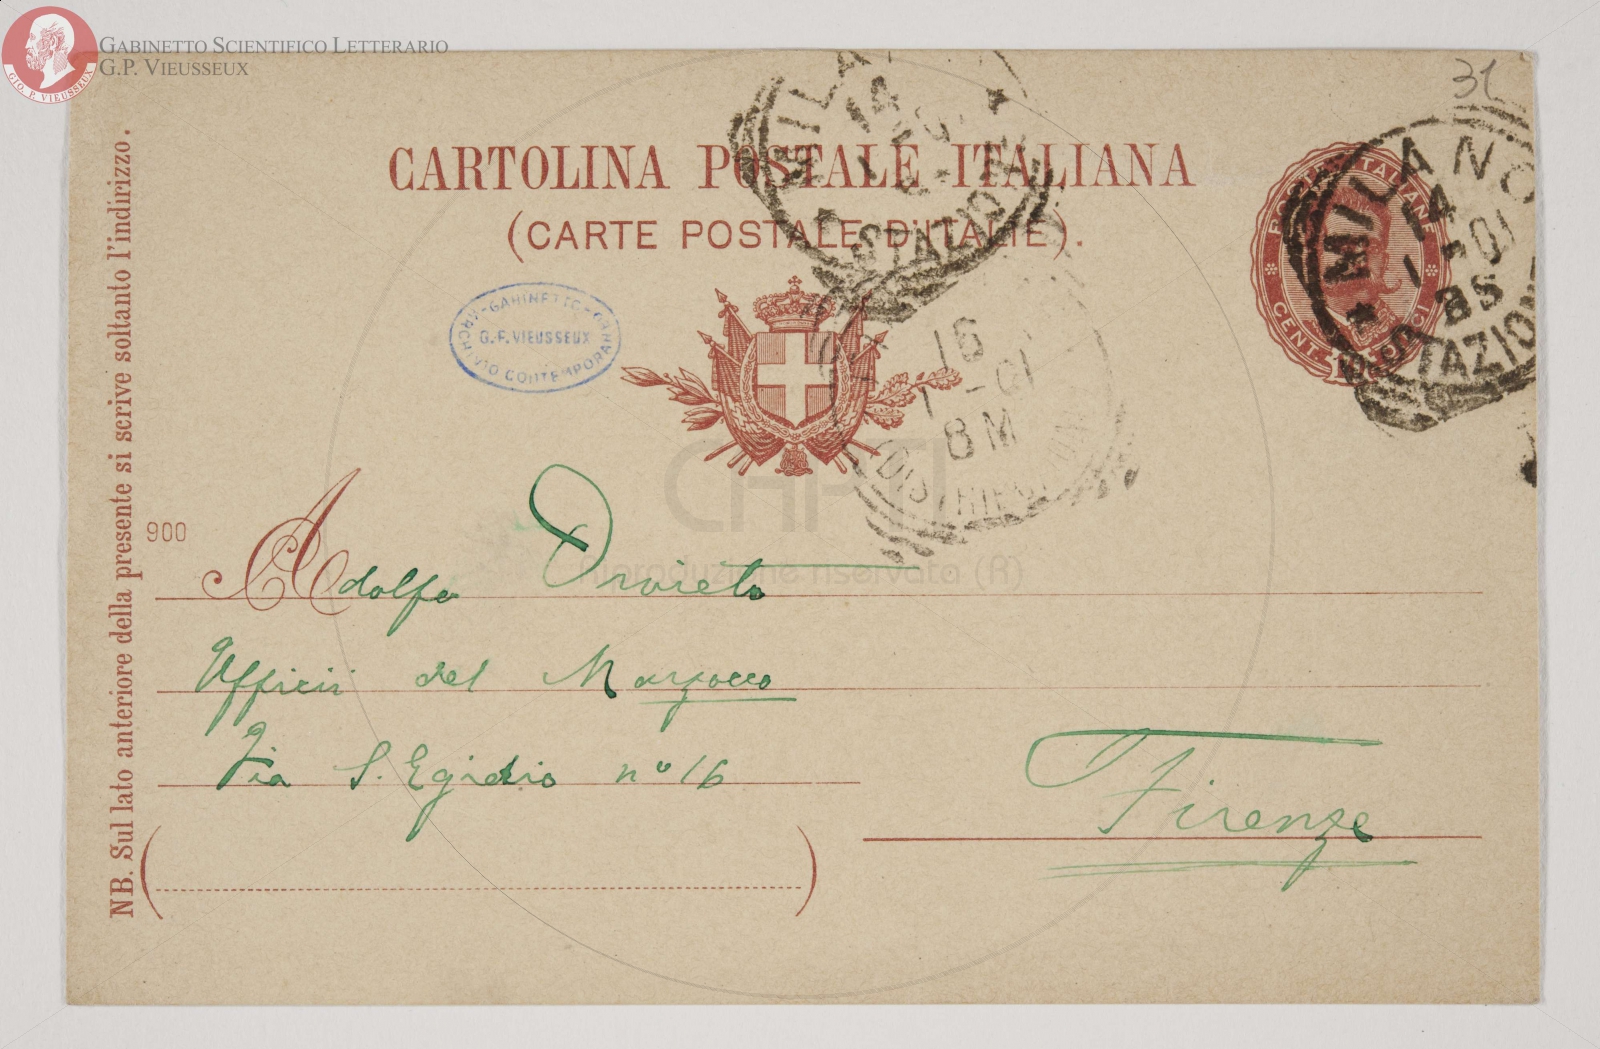 GABINETTO SCIENTIFICO LETTERARIO
G.P. VIEUSSEUX
GIO. P. VIEUSSEUX
31
CARTOLINA POSTALE ITALIANA
(CARTE POSTALE D'ITALIE).
MILANO
14
STAZIONE
POSTE ITALIANE
CENT. DIECI
MILANO
14
1-01
8S
STAZIONE
ARCHIVIO CONTEMPORANEO - GABINETTO
G.P. VIEUSSEUX
16
1-01
8M
NB. Sul lato anteriore della presente si scrive soltanto l'indirizzo.
900
CAPTI
Riproduzione riservata (R)
A Adolfo Orvieto
Ufficii del Marzocco
Via S. Egidio n° 16
Firenze